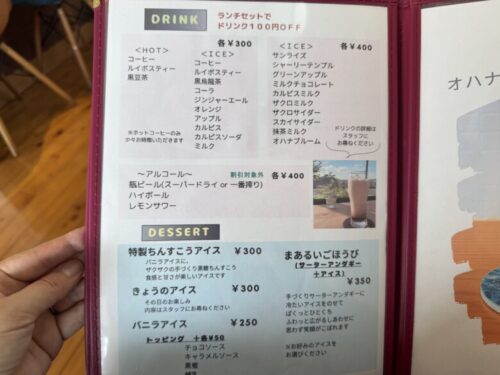 DRINK
ランチセットで
ドリンク100円OFF
各￥300
<HOT>
コーヒー
ルイボスティー
黒豆茶
※ホットコーヒーのみ
少々お時間いただきます
<ICE>
コーヒー
ルイボスティー
黒烏龍茶
コーラ
ジンジャーエール
オレンジ
アップル
カルピス
カルピスソーダ
ミルク
<ICE> 各￥400
サンライズ
シャーリーテンプル
グリーンアップル
ミルクチョコレート
カルピスミルク
ザクロミルク
ザクロサイダー
スカイサイダー
抹茶ミルク
オハナブルーム
ドリンクの詳細は
スタッフに
お尋ねください
～アルコール～ 割引対象外 各￥400
瓶ビール(スーパードライ or 一番搾り)
ハイボール
レモンサワー
DESSERT
特製ちんすこうアイス ￥300
バニラアイスに、
ザクザクの手づくり黒糖ちんすこう
食感と甘さが楽しいアイスです
きょうのアイス ￥300
その日のお楽しみ
内容はスタッフにお尋ねください
バニラアイス ￥250
トッピング +各￥50
チョコソース
キャラメルソース
黒蜜
まあるいごほうび
(サーターアンダギー
+アイス)
￥350
手づくりサーターアンダギーに
冷たいアイスをのせて
ぱくっとひとくち
ふわっと広がるしあわせに
思わず笑顔がこぼれます
※お好みのアイスを
お選びください
オハナ